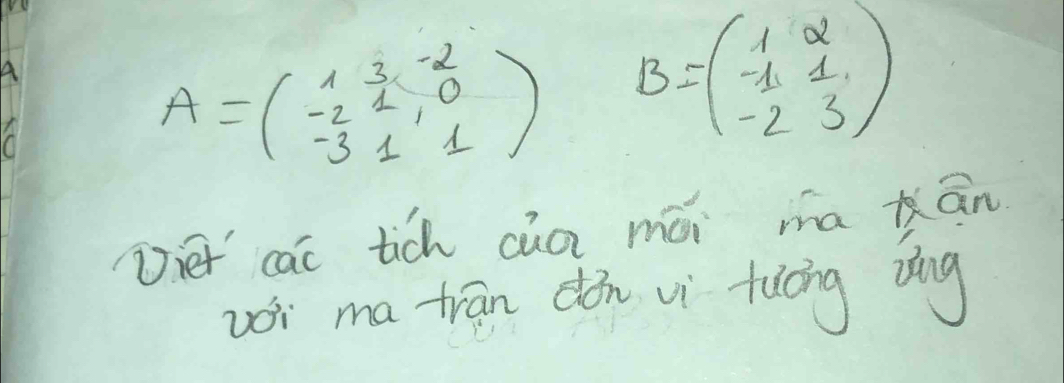 A = ( 1 3 -2
-2 1 0
-3 1 1 )
B = ( 1 2
-1 1
-2 3 )
Viết các tích của mỗi ma trận
với ma trận đơn vi tương ứng